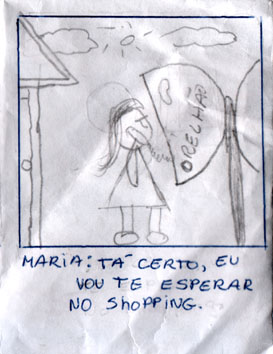 ORELHÃO
MARIA: TÁ CERTO, EU
VOU TE ESPERAR
NO SHOPPING.